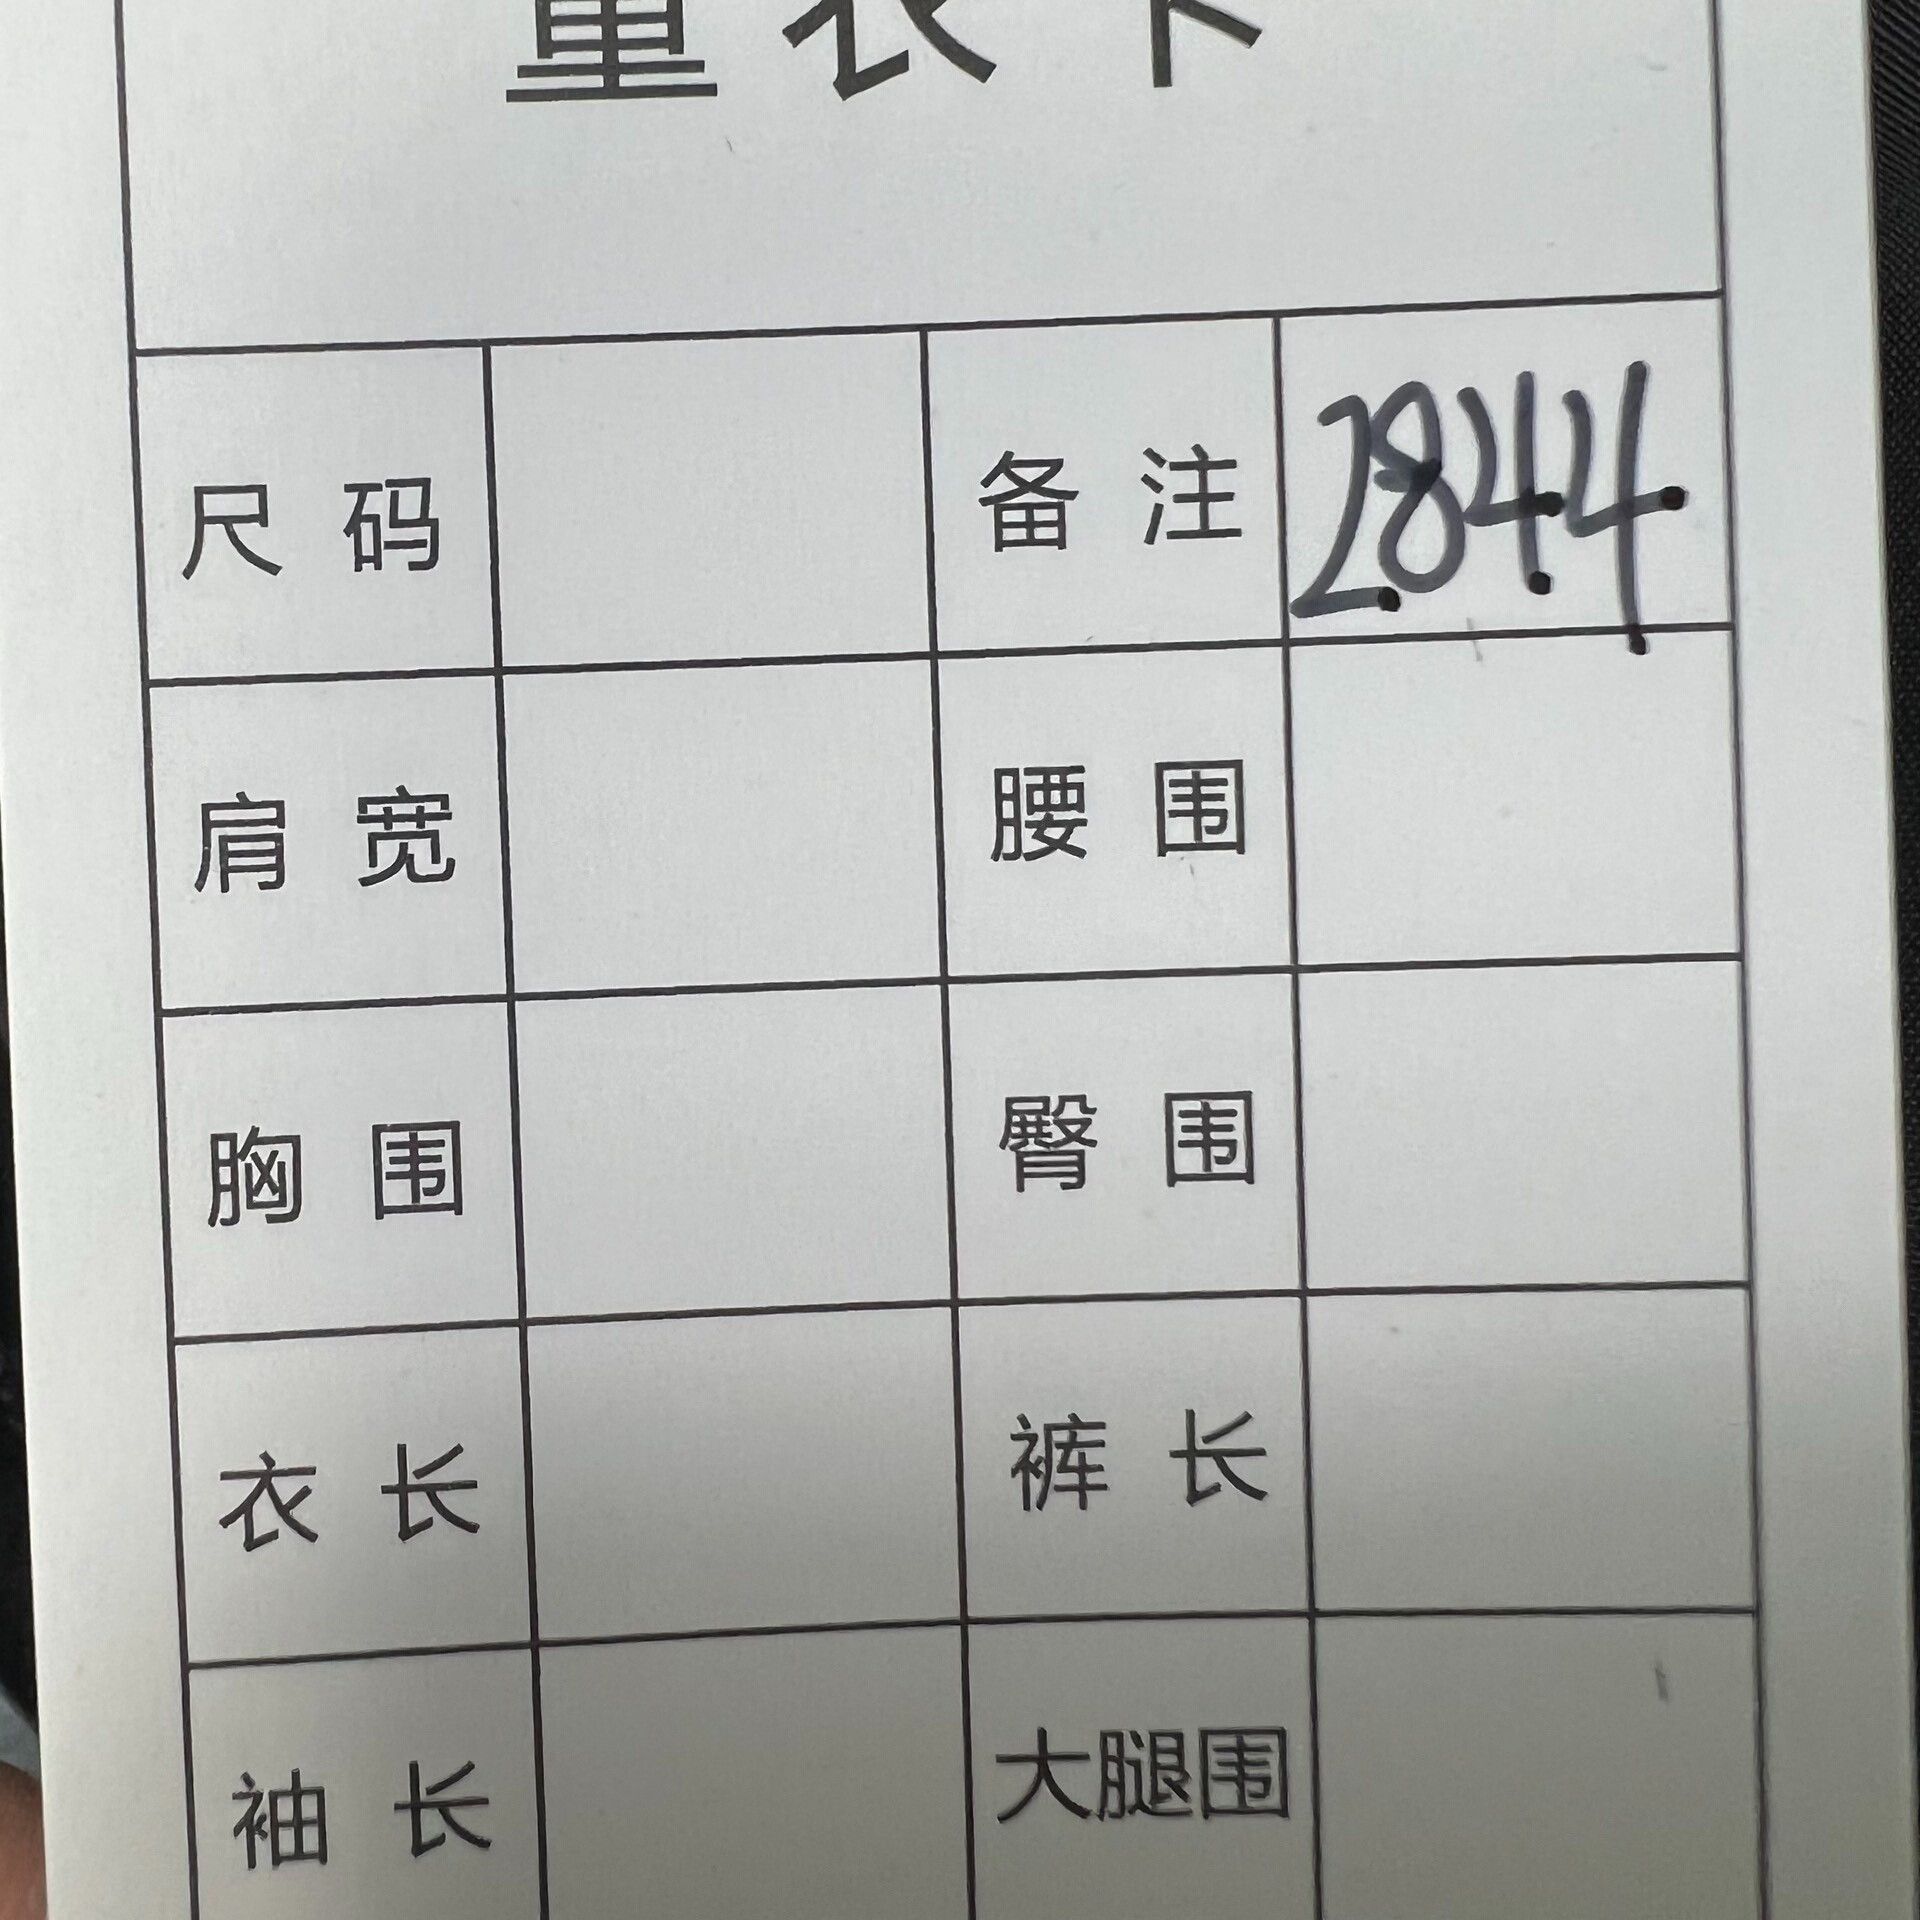 量衣卡
尺码 备注 2844
肩宽 腰围
胸围 臀围
衣长 裤长
袖长 大腿围